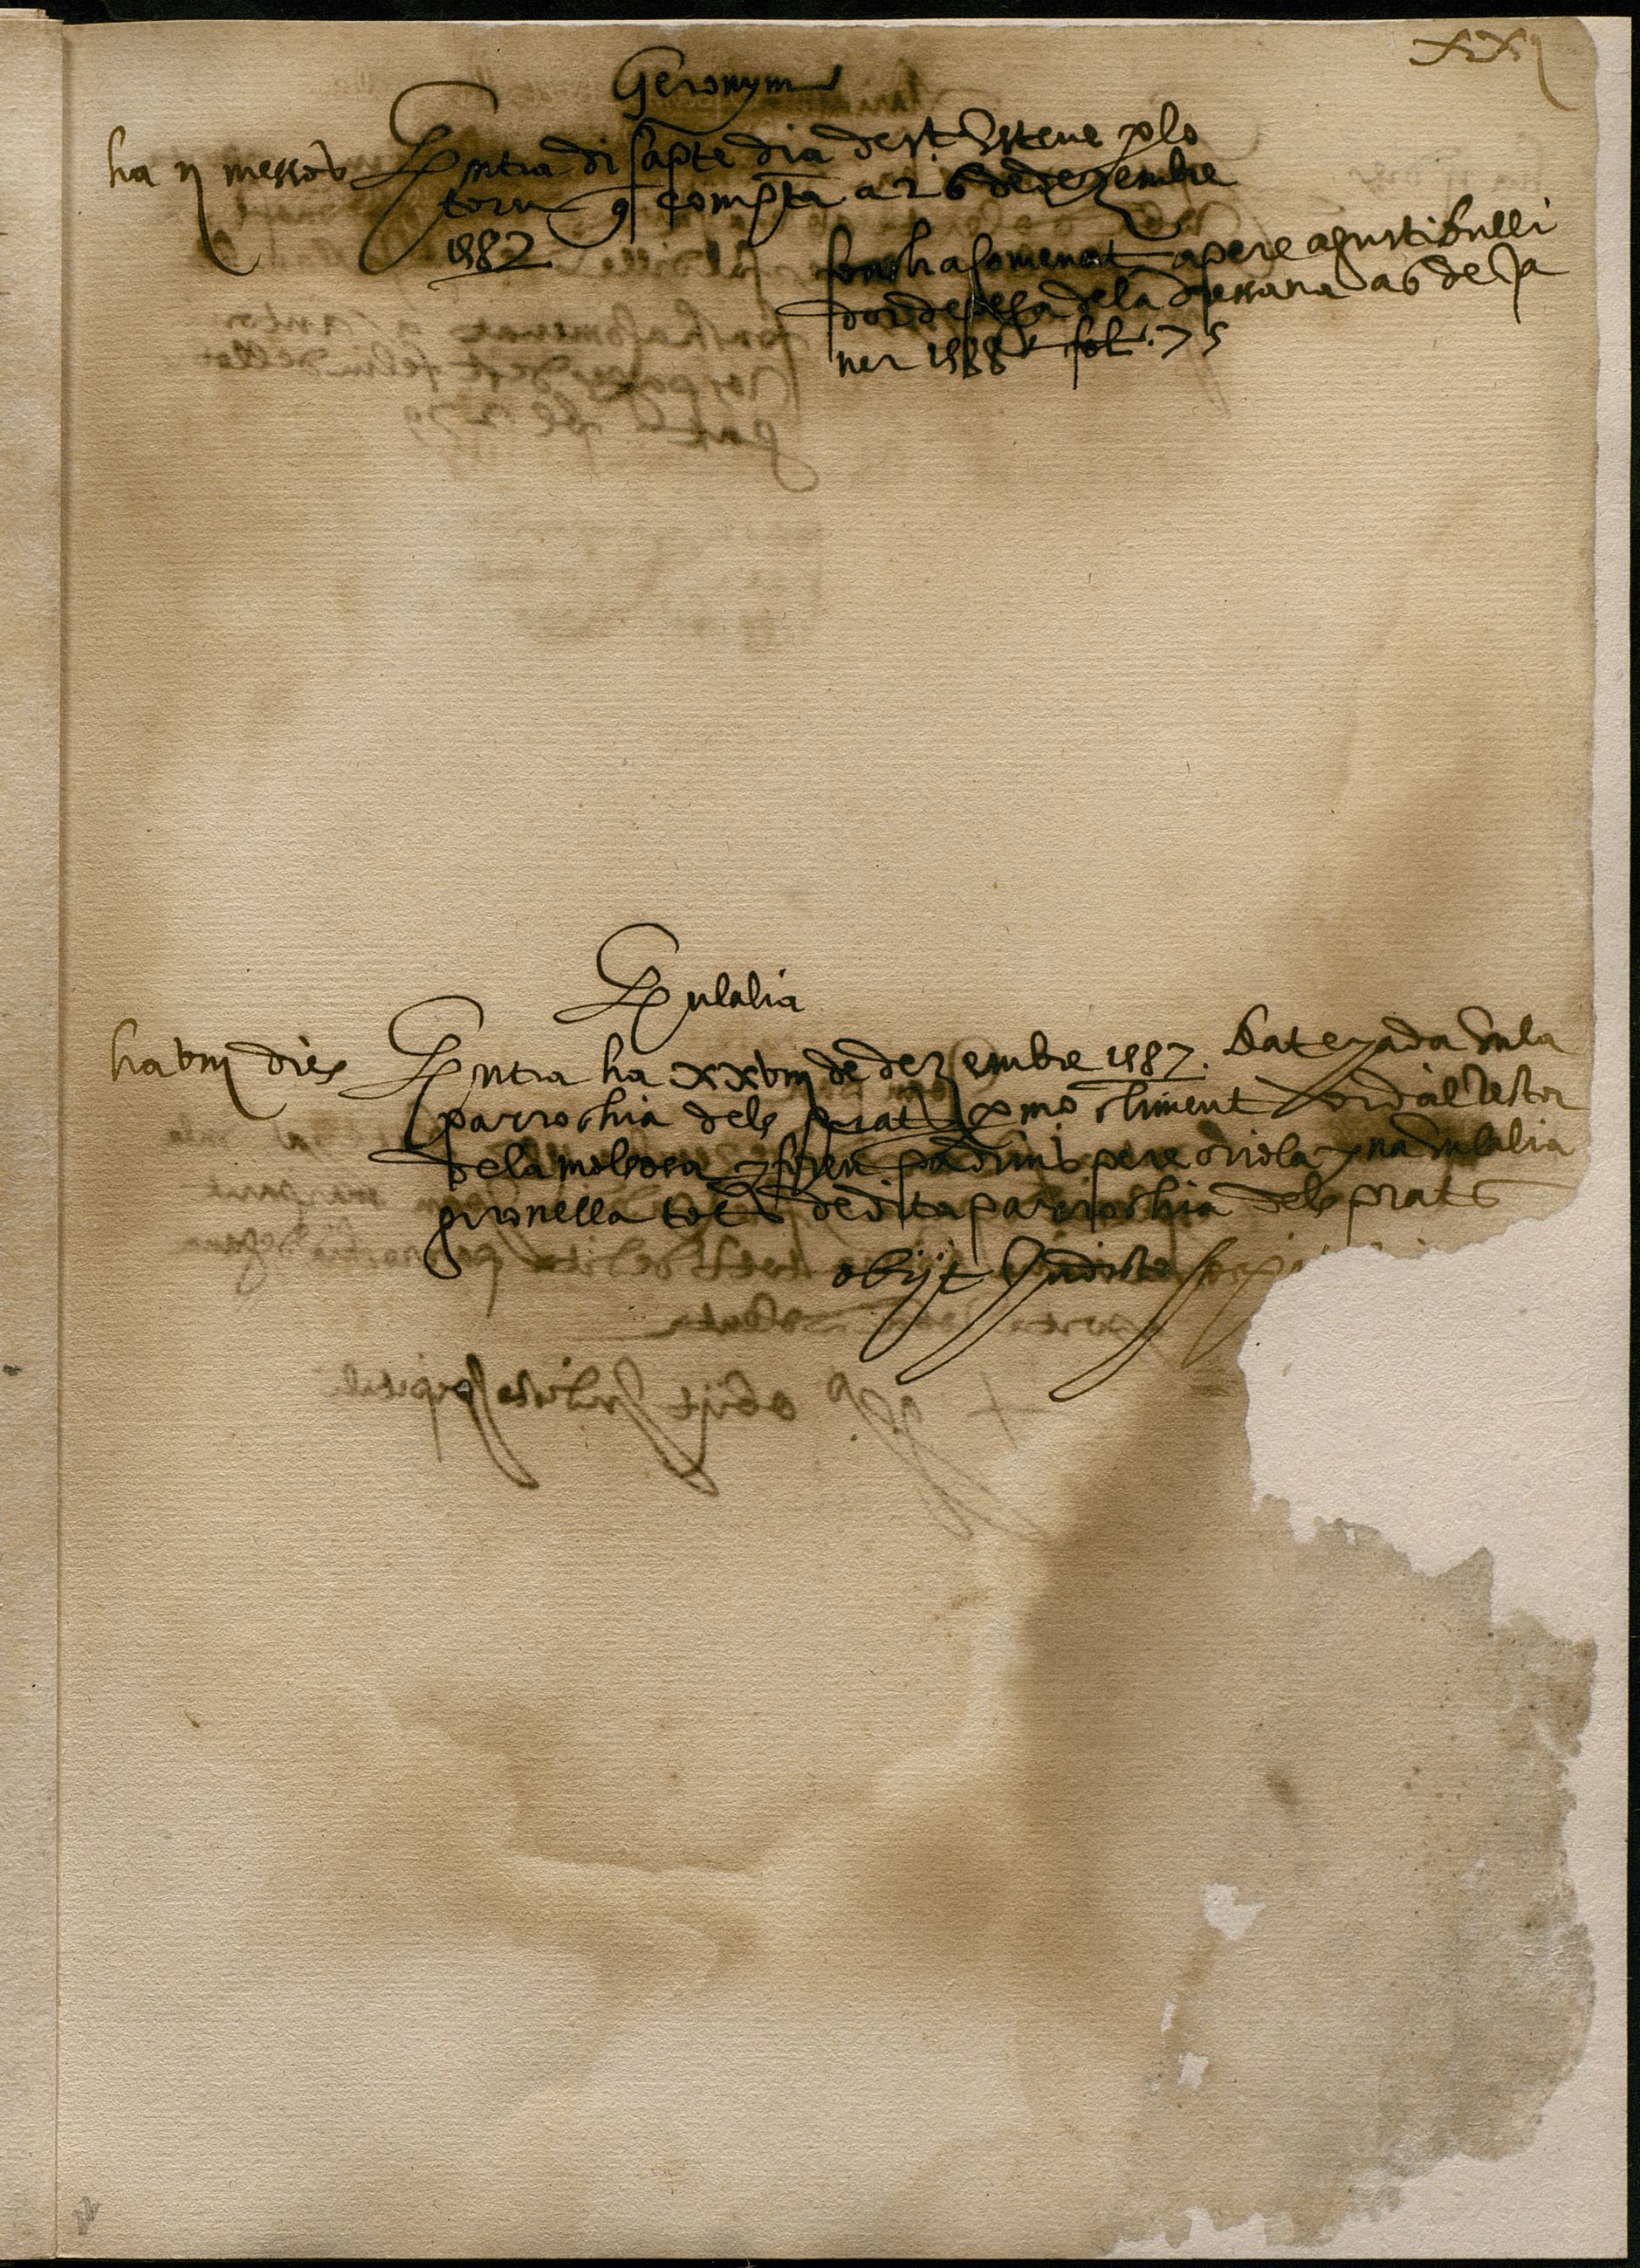 xxj
Geronym
ha ij messos Entra disapte dia de st Esteve plo
torn q comptā a 26 de dezembre
1587
ha somenat a pere agusti bulli
dor de la dressana a 6 de Ja
ner 1588 fol. 75
Eulalia
ha viij dies Entra ha xxviij de dezembre 1587. batejada en la
parrochia dels prats p mo climent rector
de la y foren padrins pere oriola y na Eulalia
gironella tots de dita parrochia dels prats
obijt